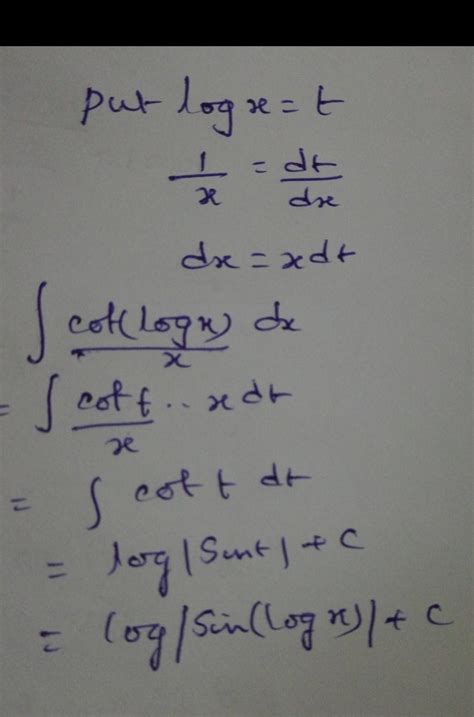 put log x = t
1/x = dt/dx
dx = x dt
∫ cot(log x)/x dx
= ∫ cot t/x .. x dt
= ∫ cot t dt
= log|Sint| + C
= log|Sin(log x)| + C